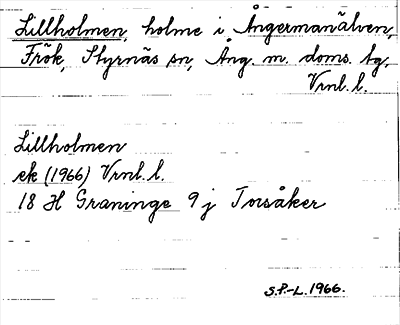 Lillholmen, holme i Ångermanälven,
Frök, Styrnäs sn, Ång. m. doms. tg,
Vrnl. l.
Lillholmen
ek (1966) Vrnl. l.
18 H Graninge 9 j Torsåker
S.P.-L. 1966.